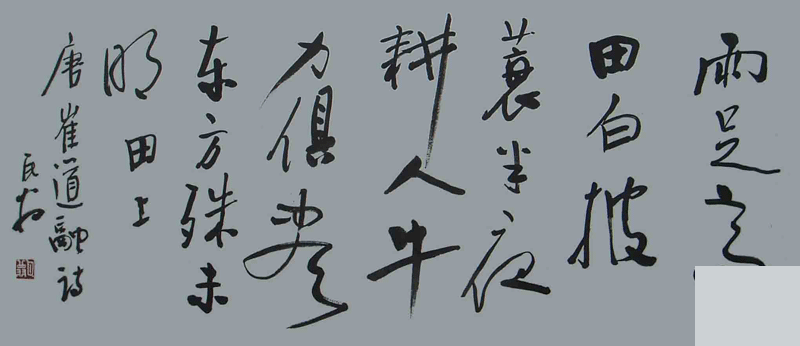 雨足高
田白披
蓑半夜
耕人牛
力俱盡
東方殊未
明田上
唐崔道融詩